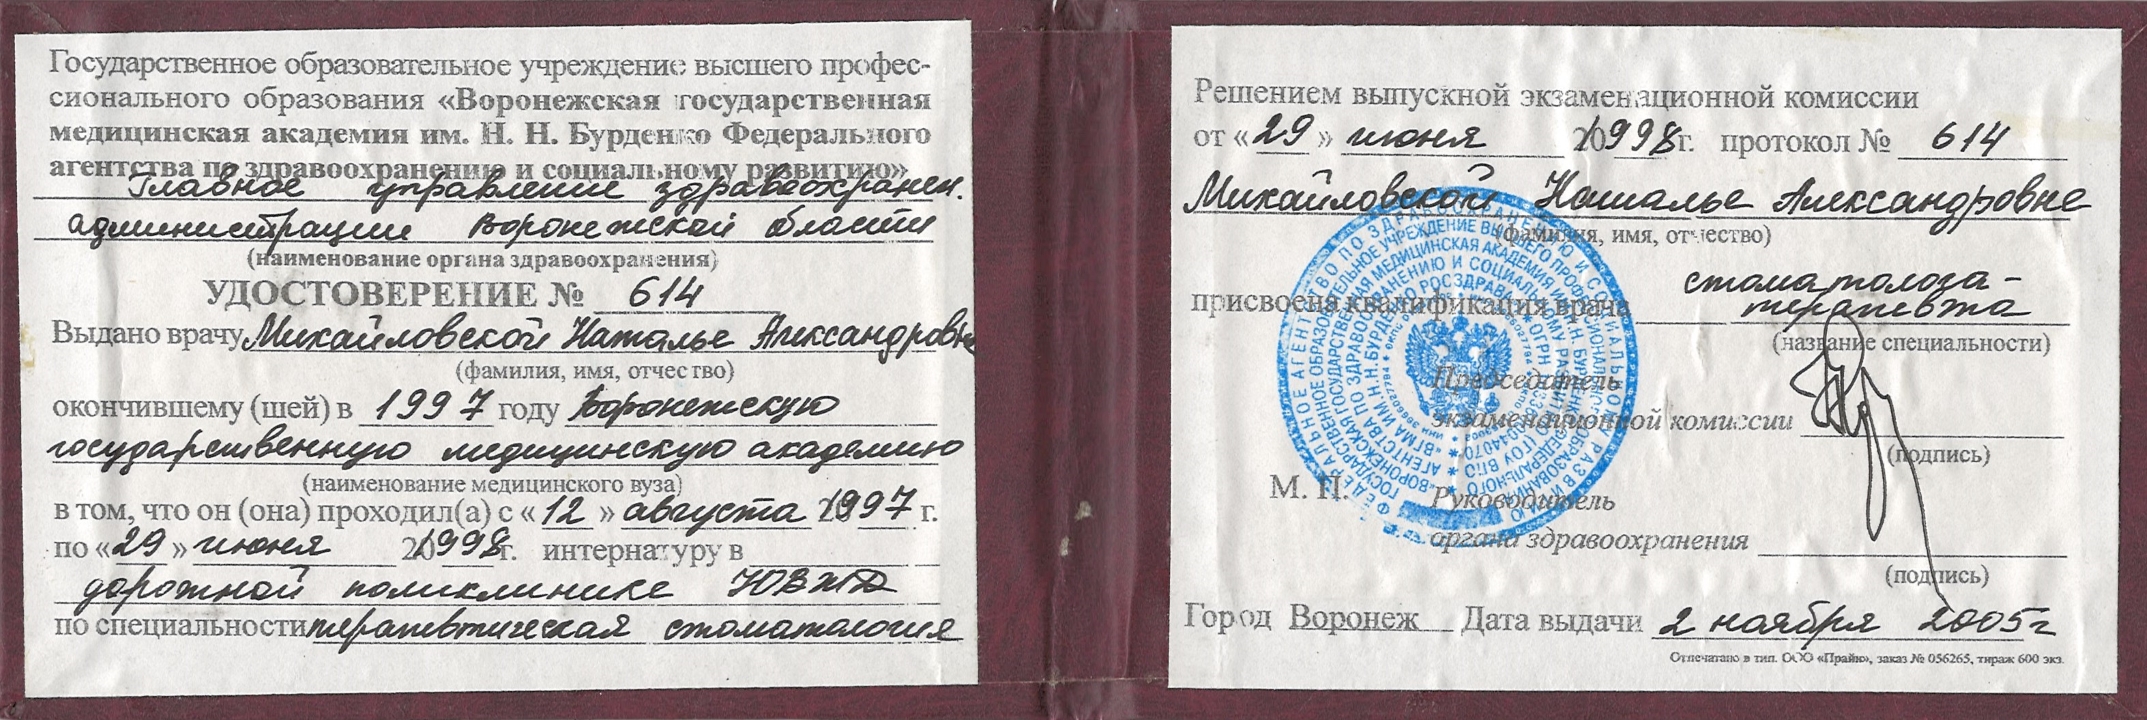 Государственное образовательное учреждение высшего профес-
сионального образования «Воронежская государственная
медицинская академия им. Н. Н. Бурденко Федерального
агентства по здравоохранению и социальному развитию»
Главное управление здравоохранен.
администрации Воронежской области
(наименование органа здравоохранения)
УДОСТОВЕРЕНИЕ № 614
Выдано врачу Михайловской Наталье Александровне
(фамилия, имя, отчество)
окончившему (шей) в 1997 году Воронежскую
государственную медицинскую академию
(наименование медицинского вуза)
в том, что он (она) проходил(а) с «12» августа 1997 г.
по «29» июня 1998 г. интернатуру в
дорожной поликлинике ЮВЖД
по специальности терапевтическая стоматология
Решением выпускной экзаменационной комиссии
от «29» июня 1998 г. протокол № 614
Михайловской Наталье Александровне
(фамилия, имя, отчество)
присвоена квалификация врача стоматолога-
терапевта
(название специальности)
Председатель
экзаменационной комиссии
(подпись)
М. П. Руководитель
органа здравоохранения
(подпись)
Город Воронеж Дата выдачи 2 ноября 2005г
Отпечатано в тип. ООО «Прайм», заказ № 056265, тираж 600 экз.